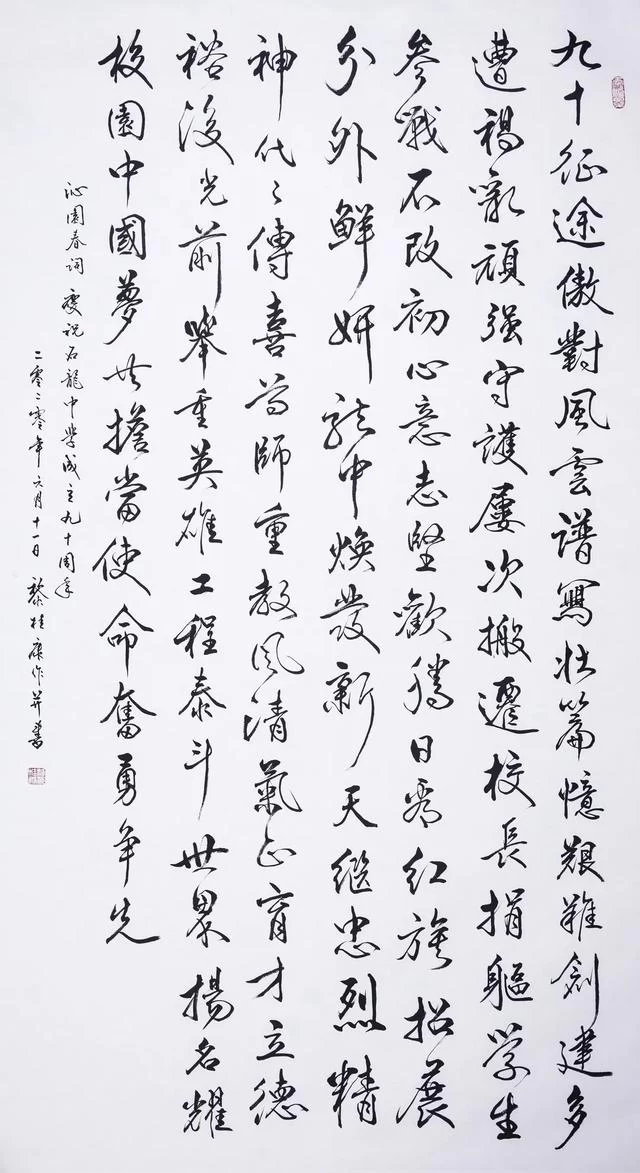 九十征途傲對風雲譜寫壯篇憶艱難創建多
遭禍亂頑强守護屢次搬遷校長捐軀學生
參戰不改初心意志堅歡騰日看紅旗招展
分外鮮妍龍中煥發新天繼忠烈精
神代代傳喜尊師重教風清氣正育才立德
裕後光前舉重英雄工程泰斗世界揚名耀
校園中國夢共擔當使命奮勇争先
沁園春詞 慶祝石龍中學成立九十周年
二零二零年六月十一日 黎桂康作并書